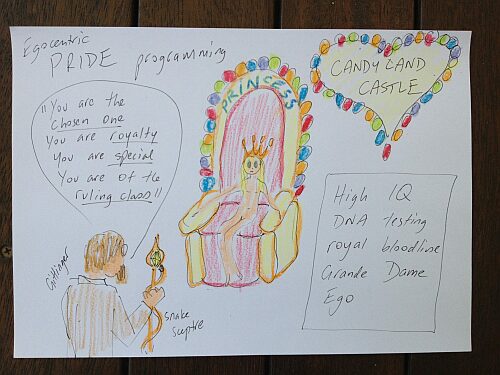 Egocentric
PRIDE programming
"You are the
chosen one
You are royalty
You are special
You are of the
ruling class"
PRINCESS
CANDY LAND
CASTLE
High IQ
DNA testing
royal bloodline
Grande Dame
Ego
Gittinger
snake
sceptre